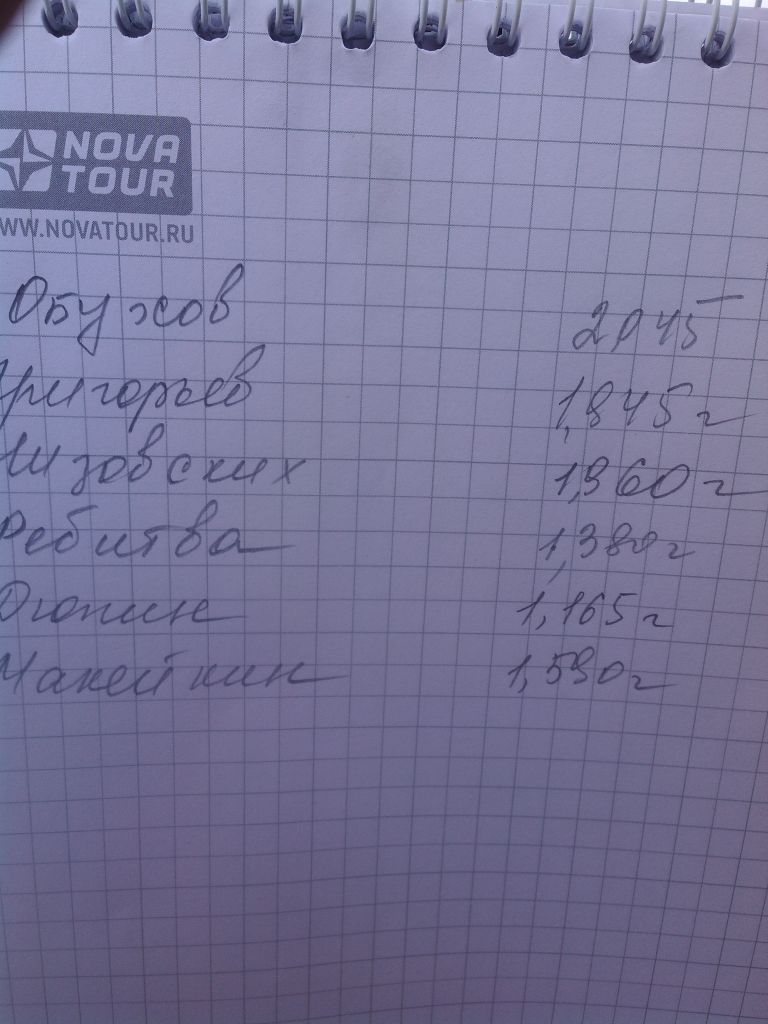 NOVA
TOUR
WWW.NOVATOUR.RU
Обухов 2,045
Григорьев 1,845 г
Низовских 1,960 г
Ребитва 1,380 г
Дюпин 1,165 г
Макейкин 1,590 г